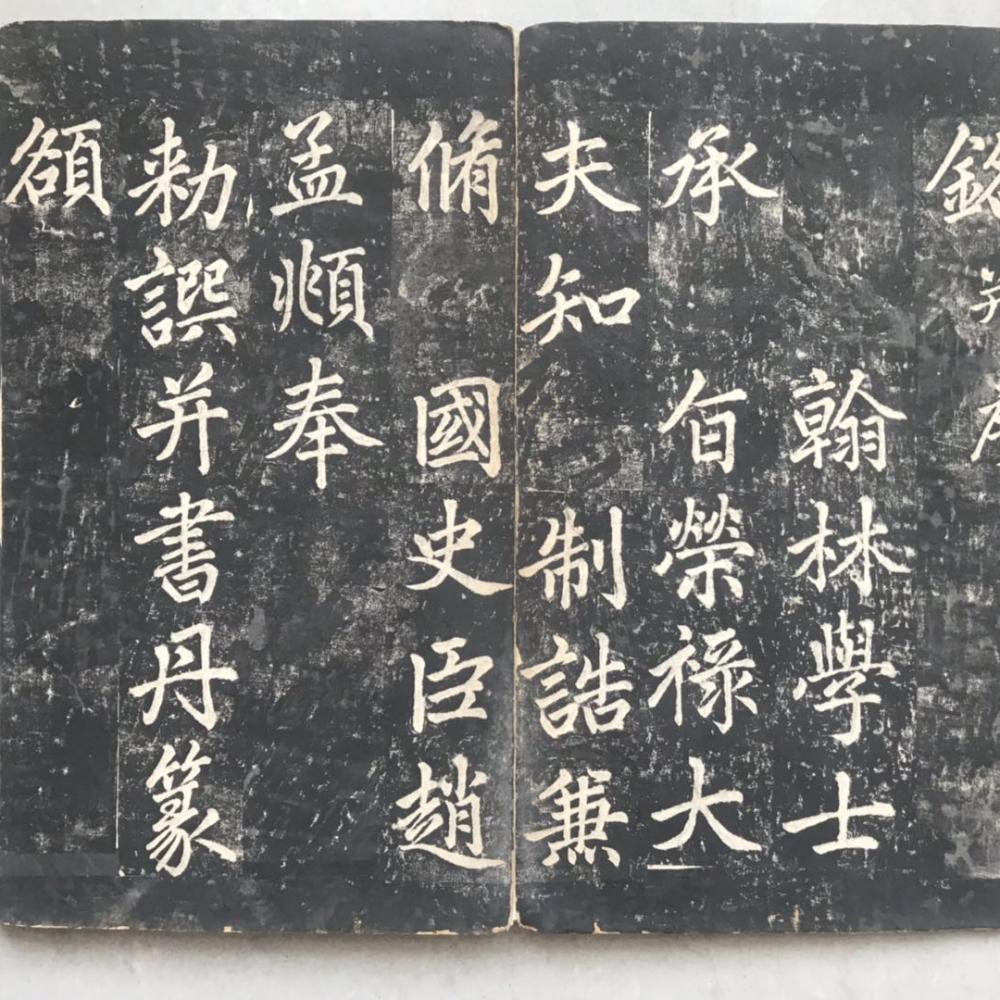 銘并序
翰林學士
承旨榮祿大
夫知制誥兼
脩國史臣趙
孟頫奉
勅譔并書丹篆
額